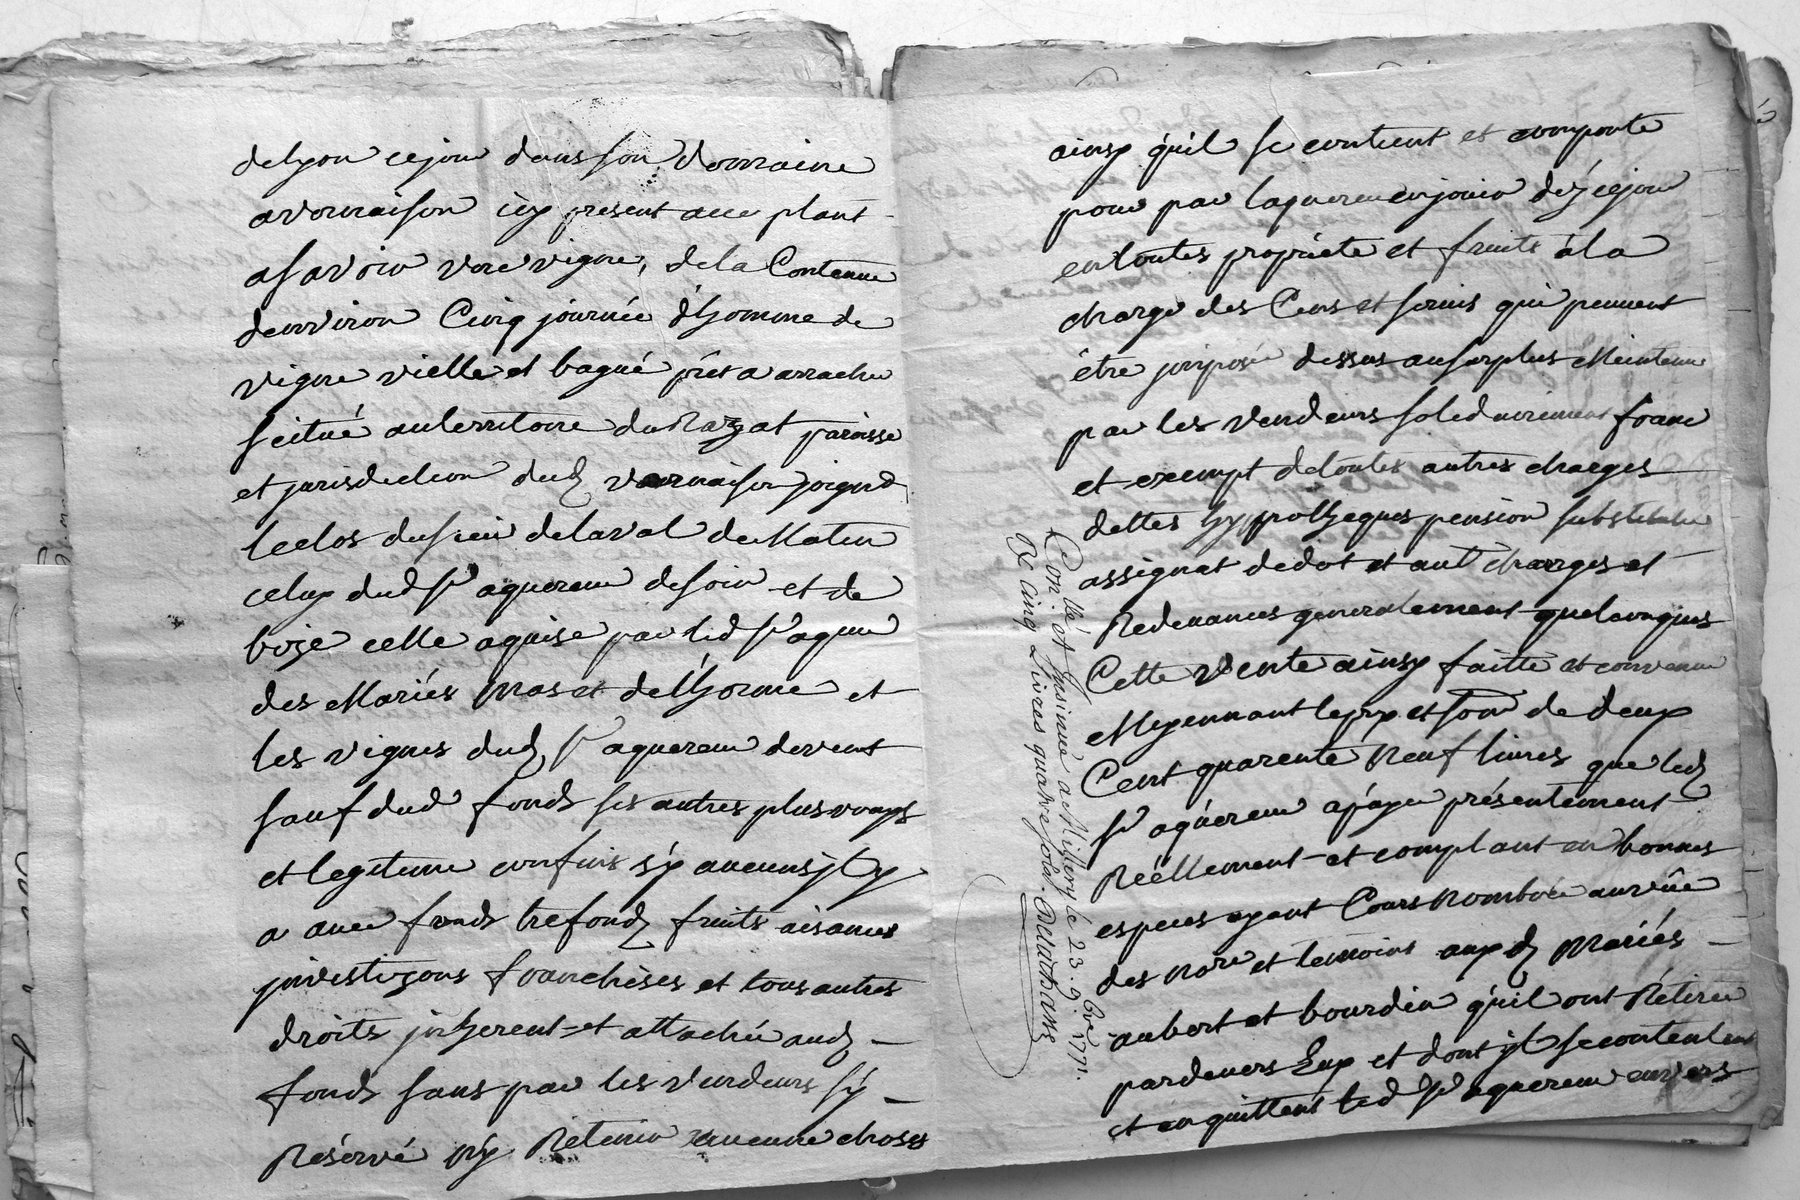 delyon cejour dans son domaine
avournaison icy present acceptant
asavoir une vigne, de la Contenue
denviron Cinq journée d'homme de
vigne vielle et bagué prêt a arracher
scitué auterritoire du Razat paroisse
et jurisdiction dud vournaison joignt
leclos dusieur delaval de Matin
celuy dud Sr aquereur de soir et de
bize celle aquise par led Sr aquer
des Mariés mas et delhorme et
les vignes dud Sr aquereur devent
sauf dud fonds ses autres plus vrays
et legitime confins sy aucuns il y
a avec fonds trefonds fruits aisances
investizons franchises et tous autres
droits inherent et attachée aud
fonds sans par les vendeurs sÿ
Réservé nÿ Retenir aucune choses
ainsy qu'il se contient et comporte
pour par laquereur enjouir déz cejour
entoutes propriété et fruits à la
charge des Cens et servis qui peuvent
être imposée dessus ausurplus Maintenu
par les vendeurs solidairement franc
et exempt detoutes autres charges
dettes hyppothèques pension substitution
assignat dedot et autr charges et
Redevances generalement quelconques
Cette vente ainsy faitte et convenue
Moyennant leprix et som de deux
Cent quarente neuf livres que led
Sr aquereur apayer présentement
Réellement et comptant en bonnes
especes ayant Cours nombrée auvüe
des nore et temoins auxd Mariés
jaubert et bourdin qu'il ont Rétirée
pardevers Eux et dont il se contentent
et en quittent led Sr aquereur envers
Con.llé et Insinué a Millery le 23. 9.bre 1771.
Rc cinq Livres quatre sols.